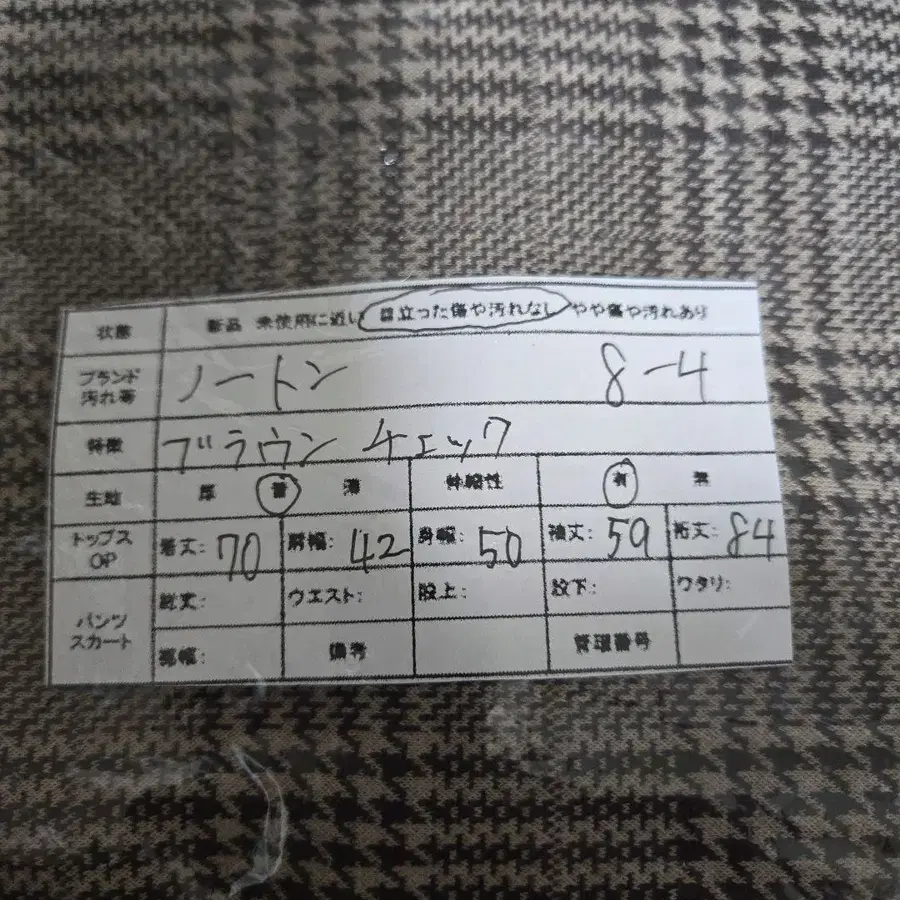 状態 新品 未使用に近い 目立った傷や汚れなし やや傷や汚れあり
ブランド 汚れ等 ノートン 8-4
特徴 ブラウン チェック
生地 厚 普 薄 伸縮性 有 無
トップス OP 着丈: 70 肩幅: 42 身幅: 50 袖丈: 59 裄丈: 84
パンツ スカート 総丈: ウエスト: 股上: 股下: ワタリ:
裾幅: 備考 管理番号